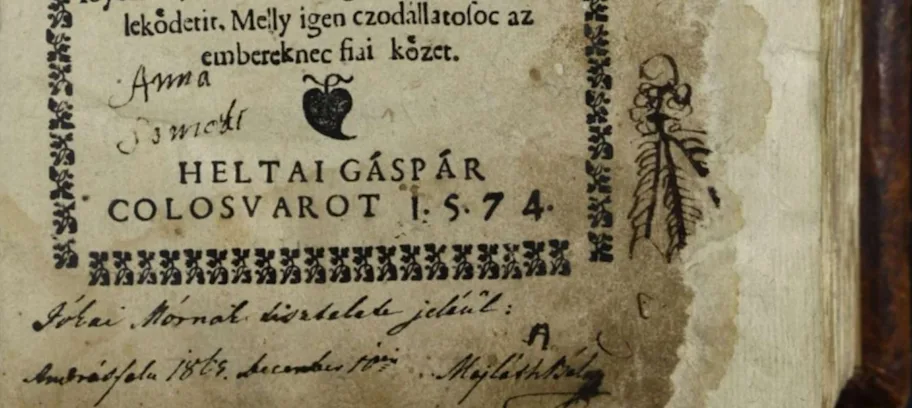 lekődetit. Melly igen czodállatosoc az
embereknec fiai kőzet.
Anna
HELTAI GÁSPÁR
COLOSVAROT 1. 5. 7 4.
Jókai Mórnak tisztelete jeléül:
Andrásfalu December 10én Majláth Béla